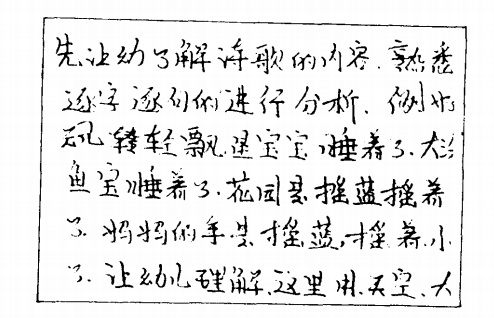 先让幼了解诗歌的内容.熟悉
逐字逐句的进行分析.例如
轻轻飘是宝宝睡着了.大
鱼宝睡着了.花园是摇蓝摇着
了.妈妈的手是摇蓝,摇着.小
了.让幼儿理解.这里用.天空、大